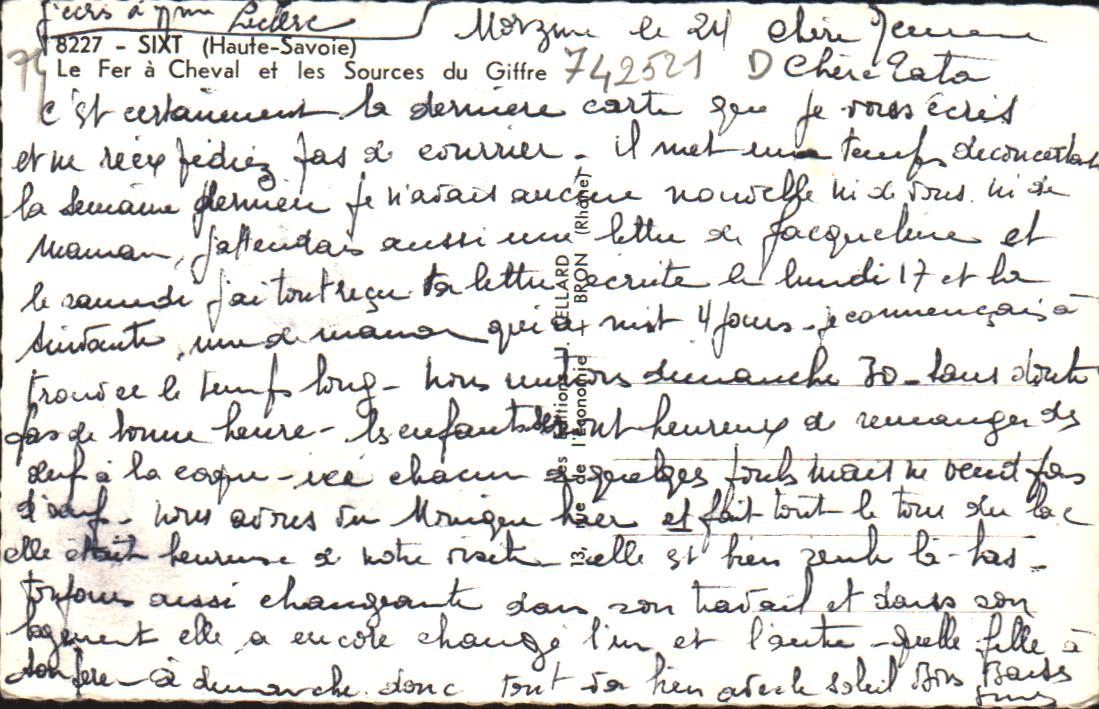 j'écris à Mme Leclerc
8227 - SIXT (Haute-Savoie)
Le Fer à Cheval et les Sources du Giffre
742521 D
Morzine le 24 Chère
Chère Tata
C'est certainement la dernière carte que je vous écris
et ne réexpédiez pas de courrier - il met un temps déconcertant
la semaine dernière je n'avais aucune nouvelle ni de vous ni de
maman, j'attendais aussi une lettre de Jacqueline et
le samedi j'ai tout reçu ta lettre écrite le lundi 17 et la
suivante, une de maman qui a mit 4 jours - je commençais à
trouver le temps long - nous rentrons dimanche 30 - sans doute
pas de bonne heure - les enfants seront heureux de remanger des
œuf à la coque - ici chacun a quelques poules mais ne vend pas
d'œuf - nous avons vu hier et fait tout le tour du lac
elle était heureuse de notre visite - elle est bien seule là-bas -
toujours aussi changeante dans son travail et dans son
logement elle a encore changé l'un et l'autre - quelle fille à
son père - à dimanche donc tout va bien avec le soleil Bons Baisers
Éditions J. CELLARD
13, rue de l'Égonomie BRON (Rhône)